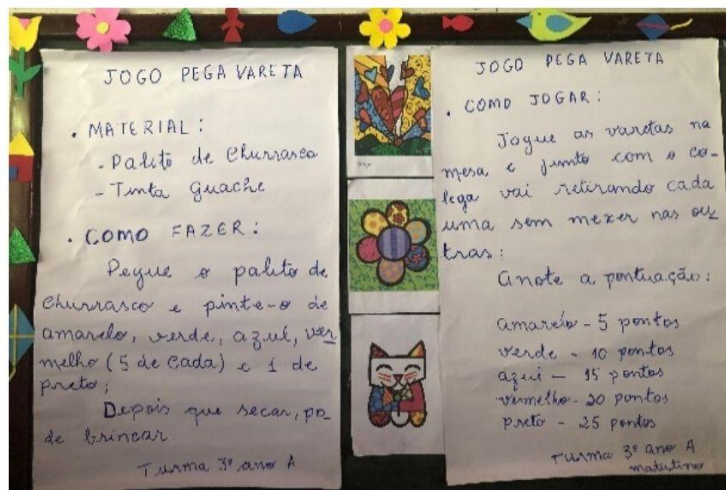 JOGO PEGA VARETA
. MATERIAL:
- Palito de Churrasco
- Tinta guache
. COMO FAZER:
Pegue o palito de
churrasco e pinte-o de
amarelo, verde, azul, ver
melho (5 de cada) e 1 de
preto;
Depois que secar, po_
de brincar.
Turma 3º ano A
JOGO PEGA VARETA
. COMO JOGAR:
Jogue as varetas na
mesa e junto com o co-
lega vai retirando cada
uma sem mexer nas ou
tras:
Anote a pontuação:
amarelo - 5 pontos
verde - 10 pontos
azul - 15 pontos
vermelho - 20 pontos
preto - 25 pontos
Turma 3º ano A
matutino